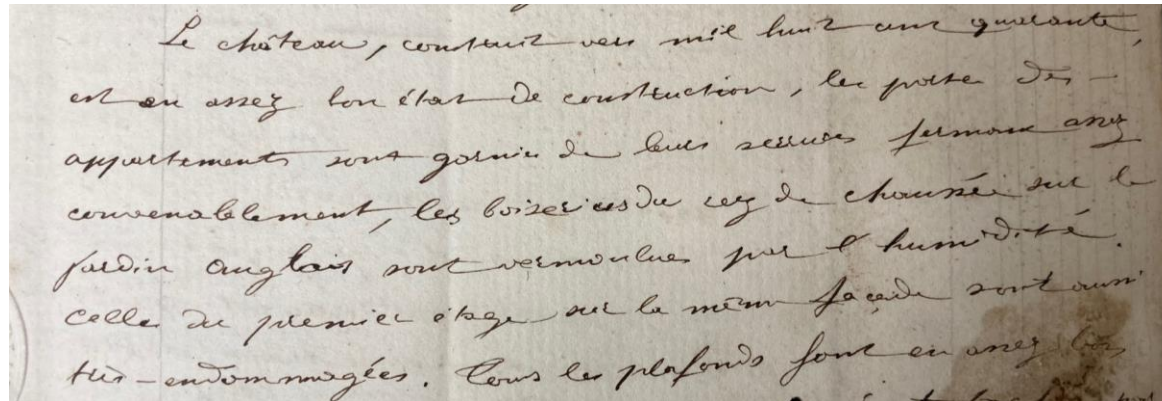 Le château, construit vers mil huit cent quarante,
est en assez bon état de construction, les portes des
appartements sont garnies de leurs serrures fermant assez
convenablement, les boiseries du rez de chaussée sur le
jardin anglais sont vermoulues par l'humidité.
celles du premier étage sur la même façade sont aussi
très-endommagées. Tous les plafonds sont en assez bon